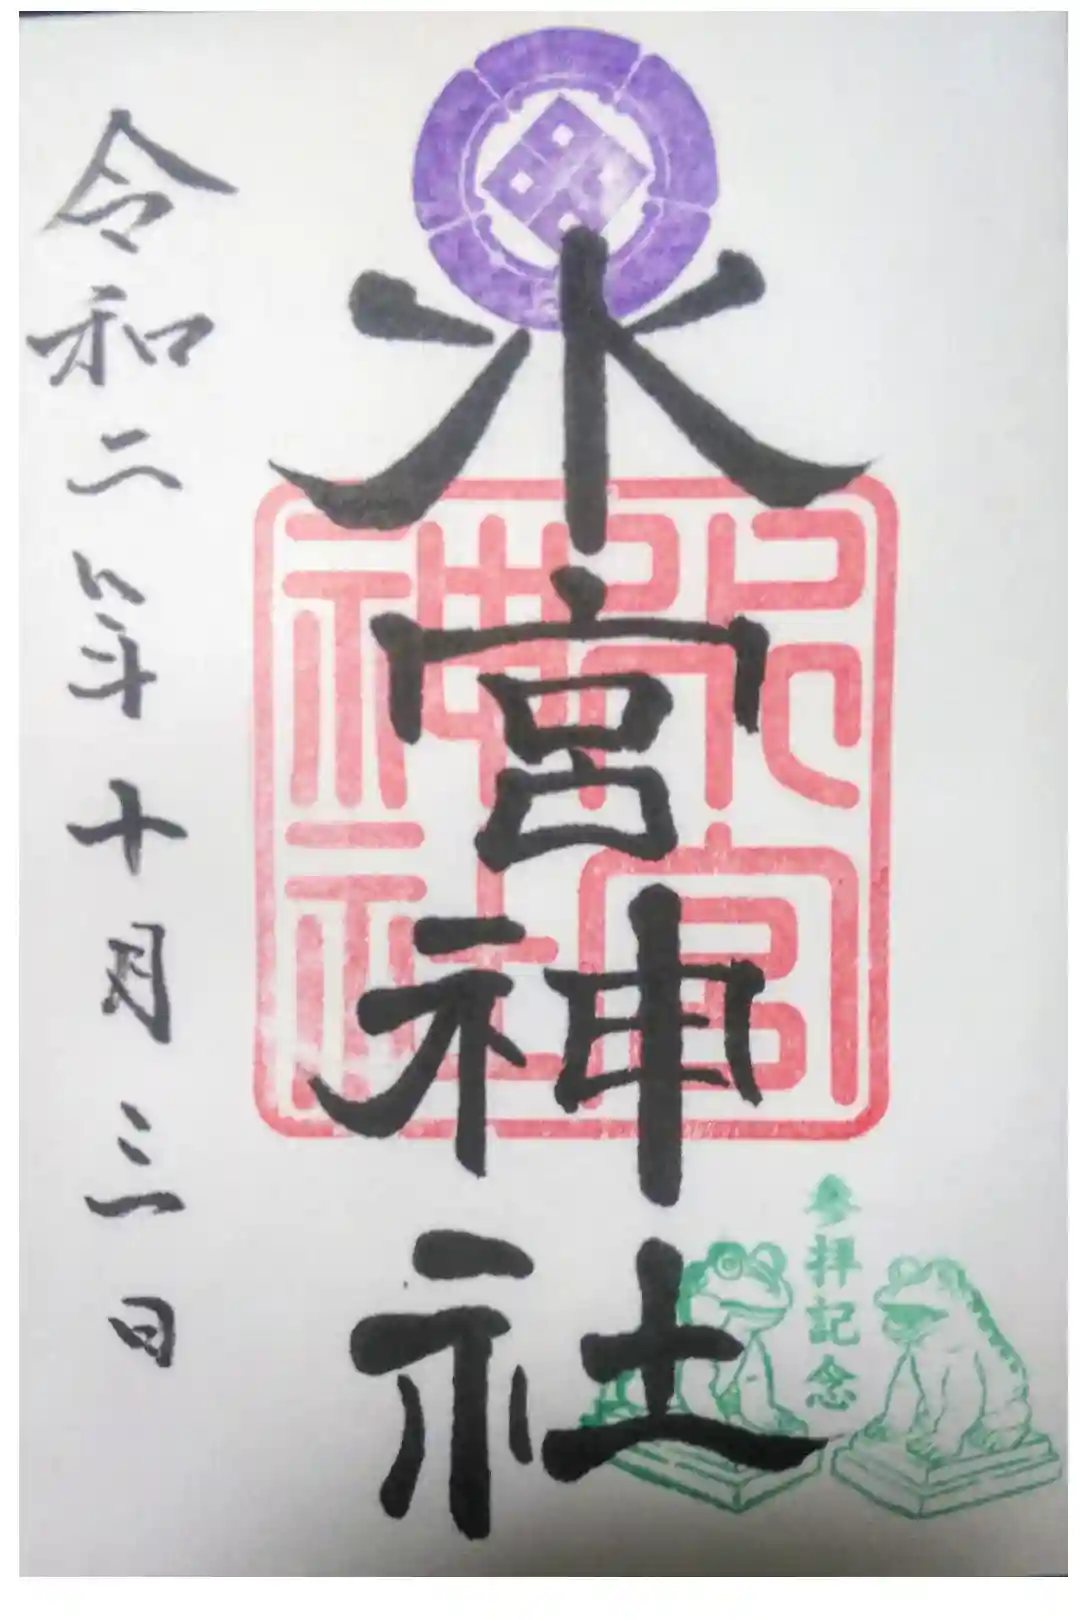 参拝記念
水宮神社
水宮神社
令和二年十月三日